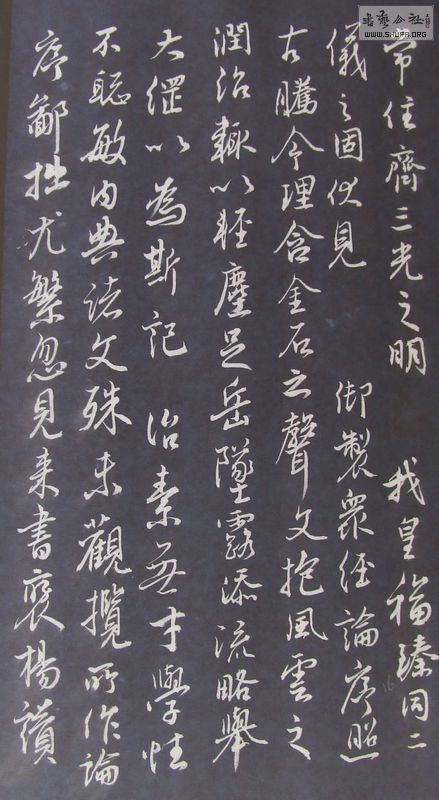 書藝公社
WWW.SHUFA.ORG
常住齊三光之明 我皇福臻同二
儀之固伏見 御製衆經論序照
古騰今理含金石之聲文抱風雲之
潤治輒以輕塵足岳墜露添流略舉
大綱以為斯記 治素無才學性
不聡敏内典諸文殊未觀攬所作論
序鄙拙尤繁忽見来書褒楊讃